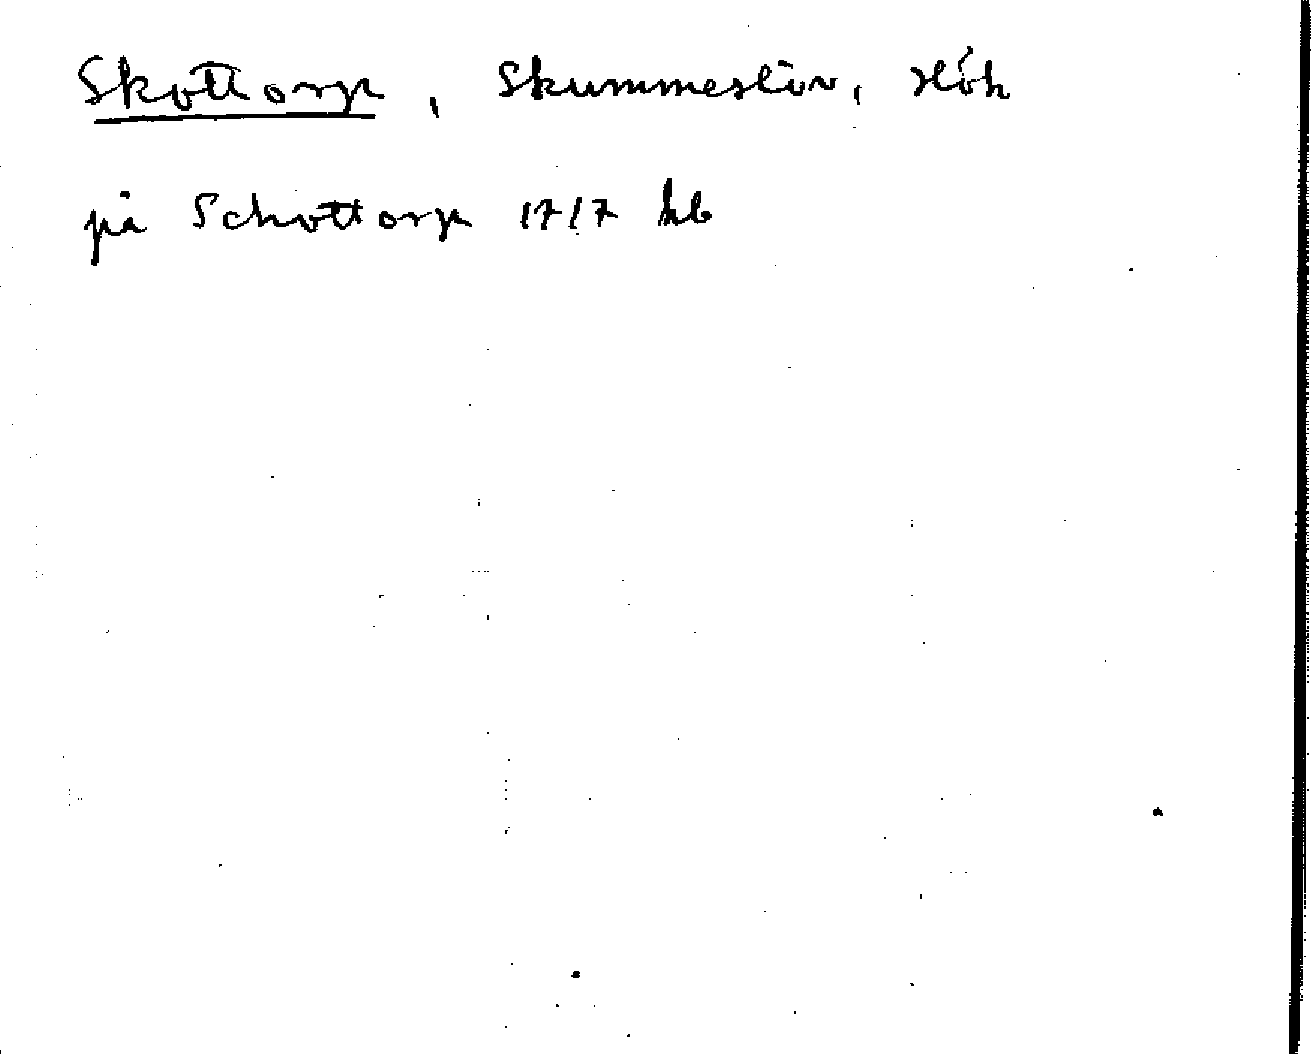 Skottorp, Skummeslöv, Höh
på Schottorp 1717 kb